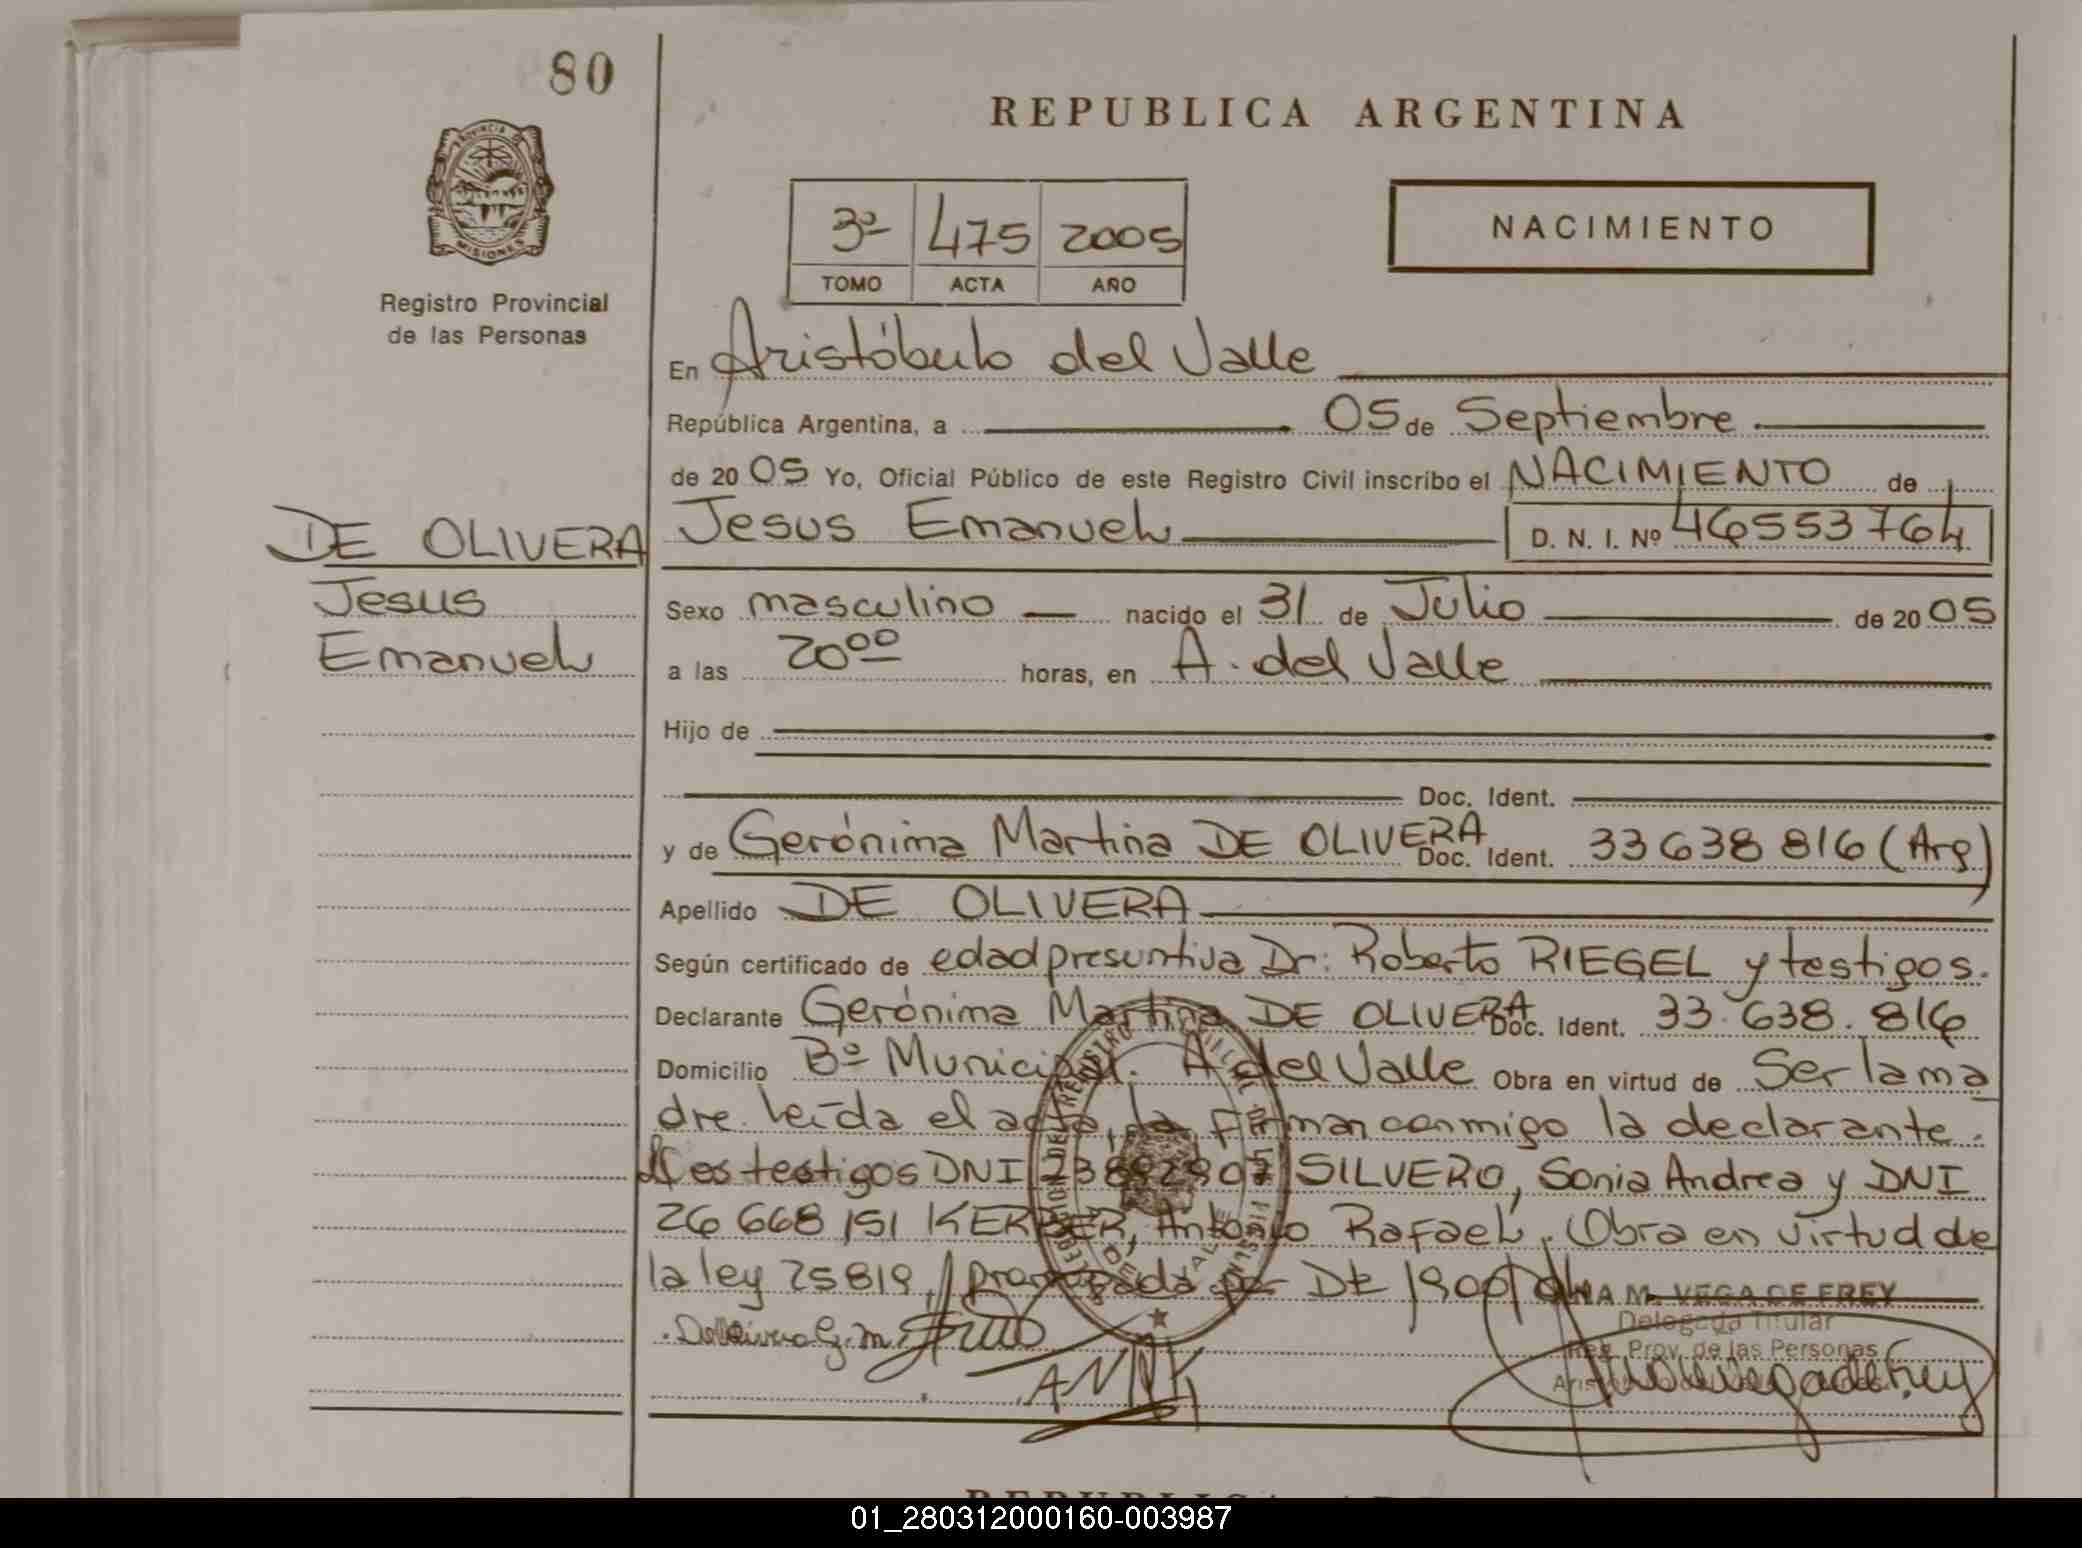 80
REPUBLICA ARGENTINA
PROVINCIA DE
MISIONES
Registro Provincial
de las Personas
3º 475 2005
TOMO ACTA AÑO
NACIMIENTO
En Aristóbulo del Valle
República Argentina, a 05 de Septiembre
de 20 05 Yo, Oficial Público de este Registro Civil inscribo el NACIMIENTO de
DE OLIVERA
Jesus
Emanuel
Jesus Emanuel D. N. I. Nº 46553764
Sexo masculino nacido el 31 de Julio de 20 05
a las 20ºº horas, en A. del Valle
Hijo de
Doc. Ident.
y de Gerónima Martina DE OLIVERA Doc. Ident. 33 638 816 (Arg)
Apellido DE OLIVERA
Según certificado de edad presuntiva Dr: Roberto RIEGEL y testigos.
Declarante Gerónima Martina DE OLIVERA Doc. Ident. 33.638.816
Domicilio Bº Municipal. A del Valle Obra en virtud de Ser la ma
dre. leída el acta, la firman conmigo la declarante.
Los testigos DNI SILVERO, Sonia Andrea y DNI
26 668 151 KERBER, Antonio Rafael. Obra en virtud de
la ley 25819, prorrogada por
M. VEGA DE FREY
Delegada Titular
Reg. Prov. de las Personas
De Olivera G. M.
REPUBLICA
01_280312000160-003987